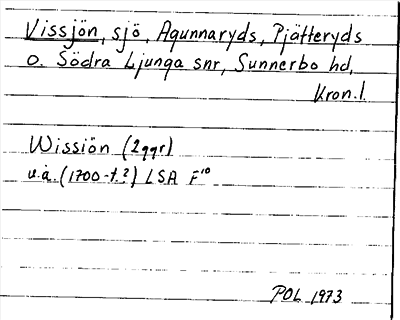 Vissjön, sjö, Agunnaryds, Pjätteryds
o. Södra Ljunga snr, Sunnerbo hd,
Kron.l.
Wissiön (2 ggr)
u.å. (1700-t.?) LSA F¹⁰
POL 1973